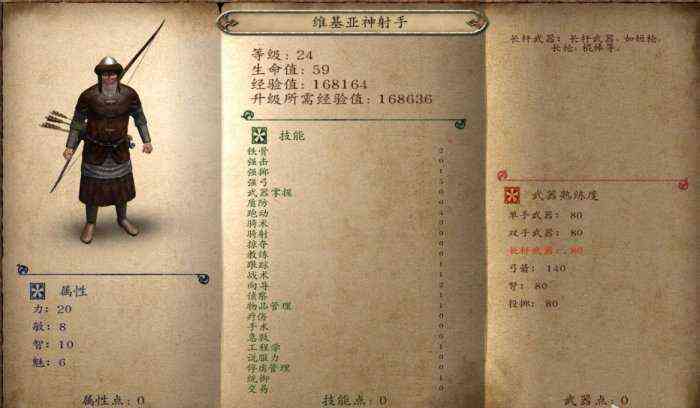 维基亚神射手
等级: 24
生命值: 59
经验值: 168164
升级所需经验值: 168636
技能
铁骨 2
强击
强掷
强弓 5
武器掌握
盾防
跑动 4
骑术
骑射
掠夺
教练
跟踪
战术
向导
侦察
物品管理
疗伤
手术
急救
工程学
说服力
俘虏管理
统御
交易
技能点: 0
属性
力: 20
敏: 8
智: 10
魅: 6
属性点: 0
长杆武器: 长杆武器, 如短枪,
长枪, 棍棒等。
武器熟练度
单手武器: 80
双手武器: 80
长杆武器: 80
弓箭: 140
弩: 80
投掷: 80
武器点: 0